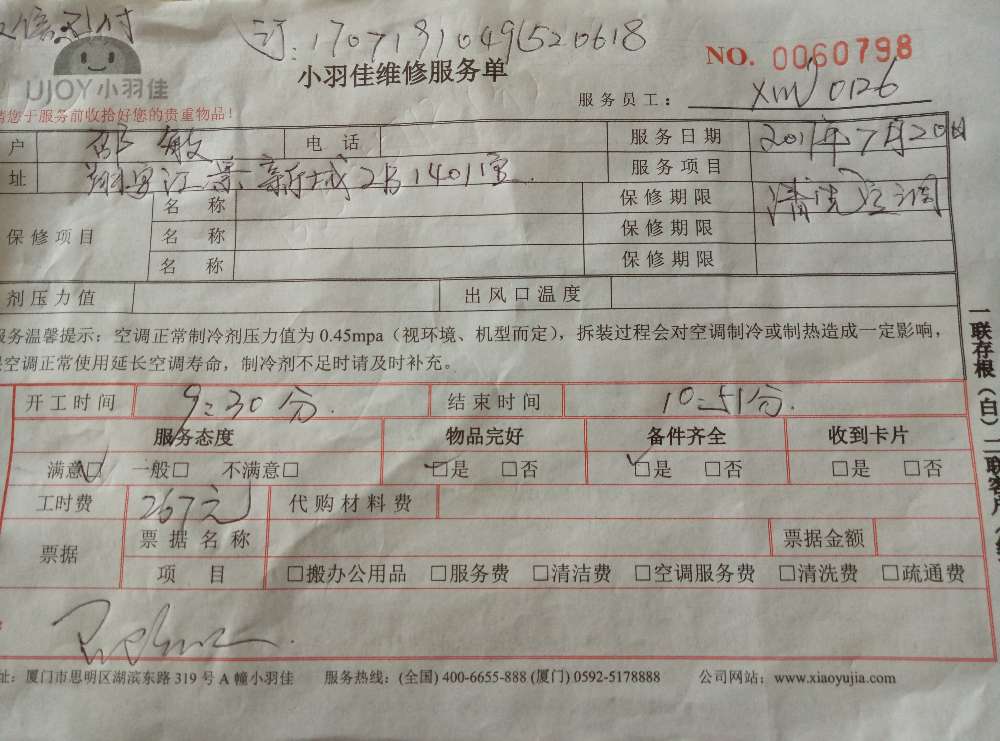 信支付
订:170719104961520618
NO. 0060798
UJOY 小羽佳
小羽佳维修服务单
服务员工: XM0126
您于服务前收拾好您的贵重物品!
户 邵敏 电话 服务日期 2017年7月20日
址 江景新城2B1401室 服务项目
保修项目 名称 保修期限 清洗空调
名称 保修期限
名称 保修期限
剂压力值 出风口温度
服务温馨提示:空调正常制冷剂压力值为0.45mpa(视环境、机型而定),拆装过程会对空调制冷或制热造成一定影响,
空调正常使用延长空调寿命,制冷剂不足时请及时补充。
开工时间 9:30分. 结束时间 10:51分.
服务态度 物品完好 备件齐全 收到卡片
满意□ 一般□ 不满意□ □是 □否 □是 □否 □是 □否
工时费 267元 代购材料费
票据 票据名称 票据金额
项目 □搬办公用品 □服务费 □清洁费 □空调服务费 □清洗费 □疏通费
址:厦门市思明区湖滨东路319号A幢小羽佳 服务热线:(全国) 400-6655-888 (厦门) 0592-5178888 公司网站:www.xiaoyujia.com
一联存根(白)二联客户